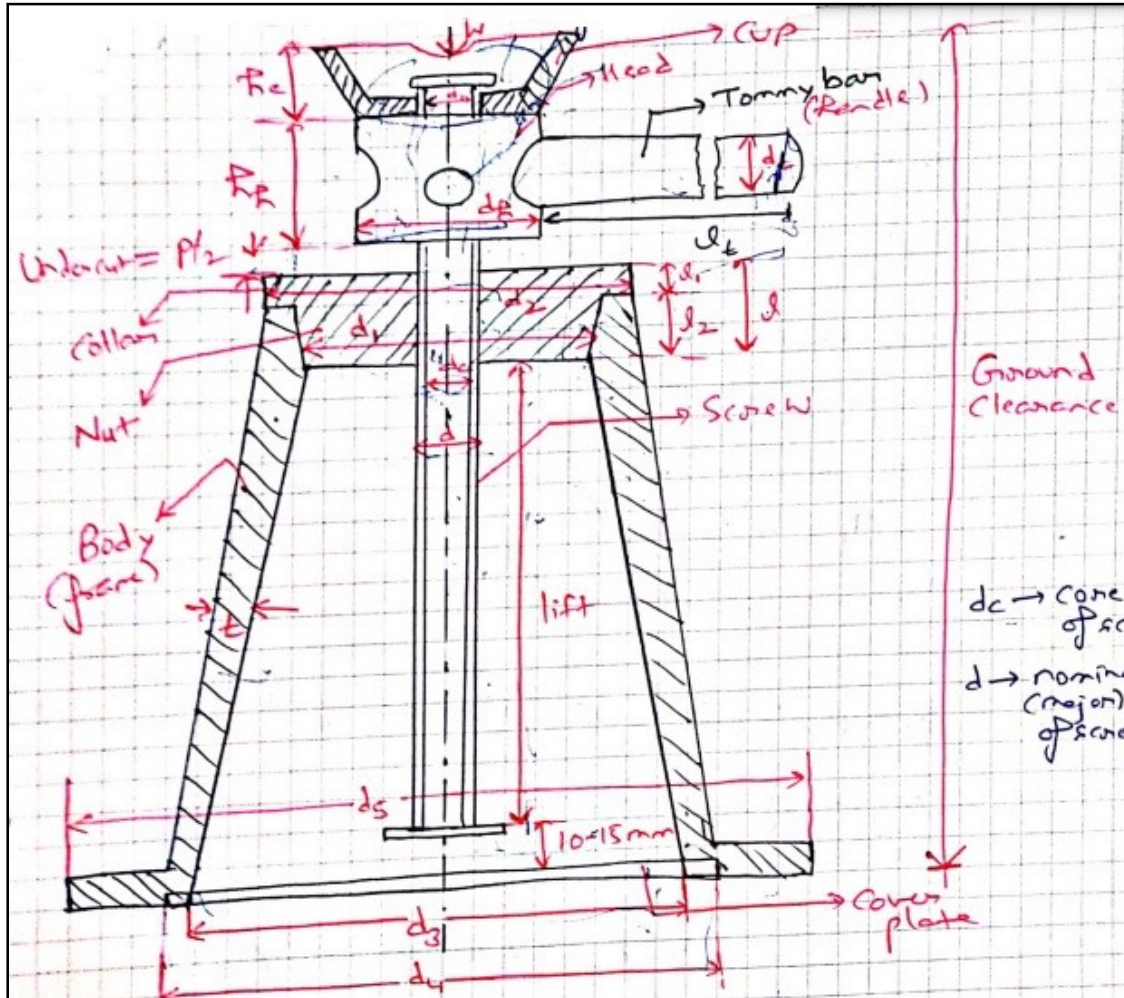 W
Cup
Head
hc
Tommy bar
(Handle)
hh
dh
lt
Undercut = P/2
l1
l2
l
d2
d1
Collar
dc
Nut
Screw
d
Ground
Clearance
Body
(frame)
t
lift
dc → core
of sc
d → nomin
(major)
of scre
d5
10-15mm
d3
cover
plate
d4